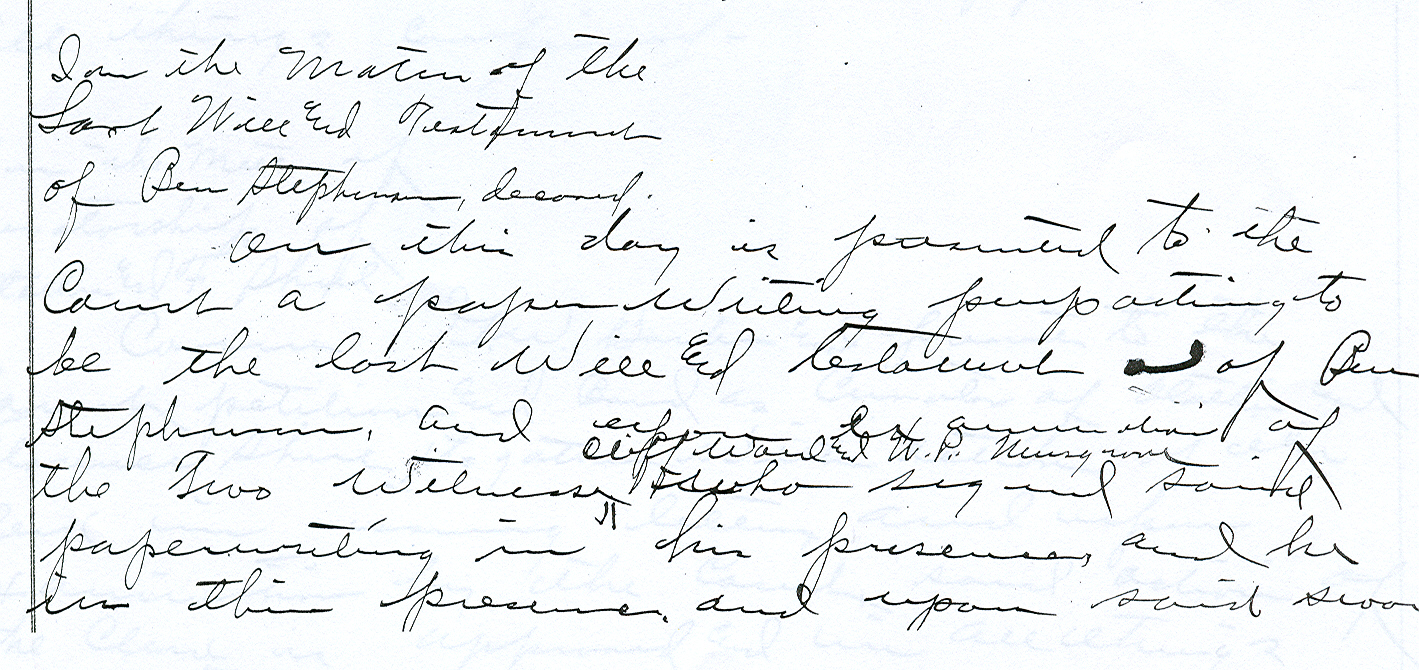 In the Matter of the
Last Will and Testament
of Ben Stephenson, deceased.
On this day is presented to the
Court a paper writing purporting to
be the last Will and testament of Ben
Stephenson, and upon examination of
Cliff Ward and W. P. Musgrove
the Two Witnesses who signed said
paperwriting in his presence, and he
in their presence, and upon said